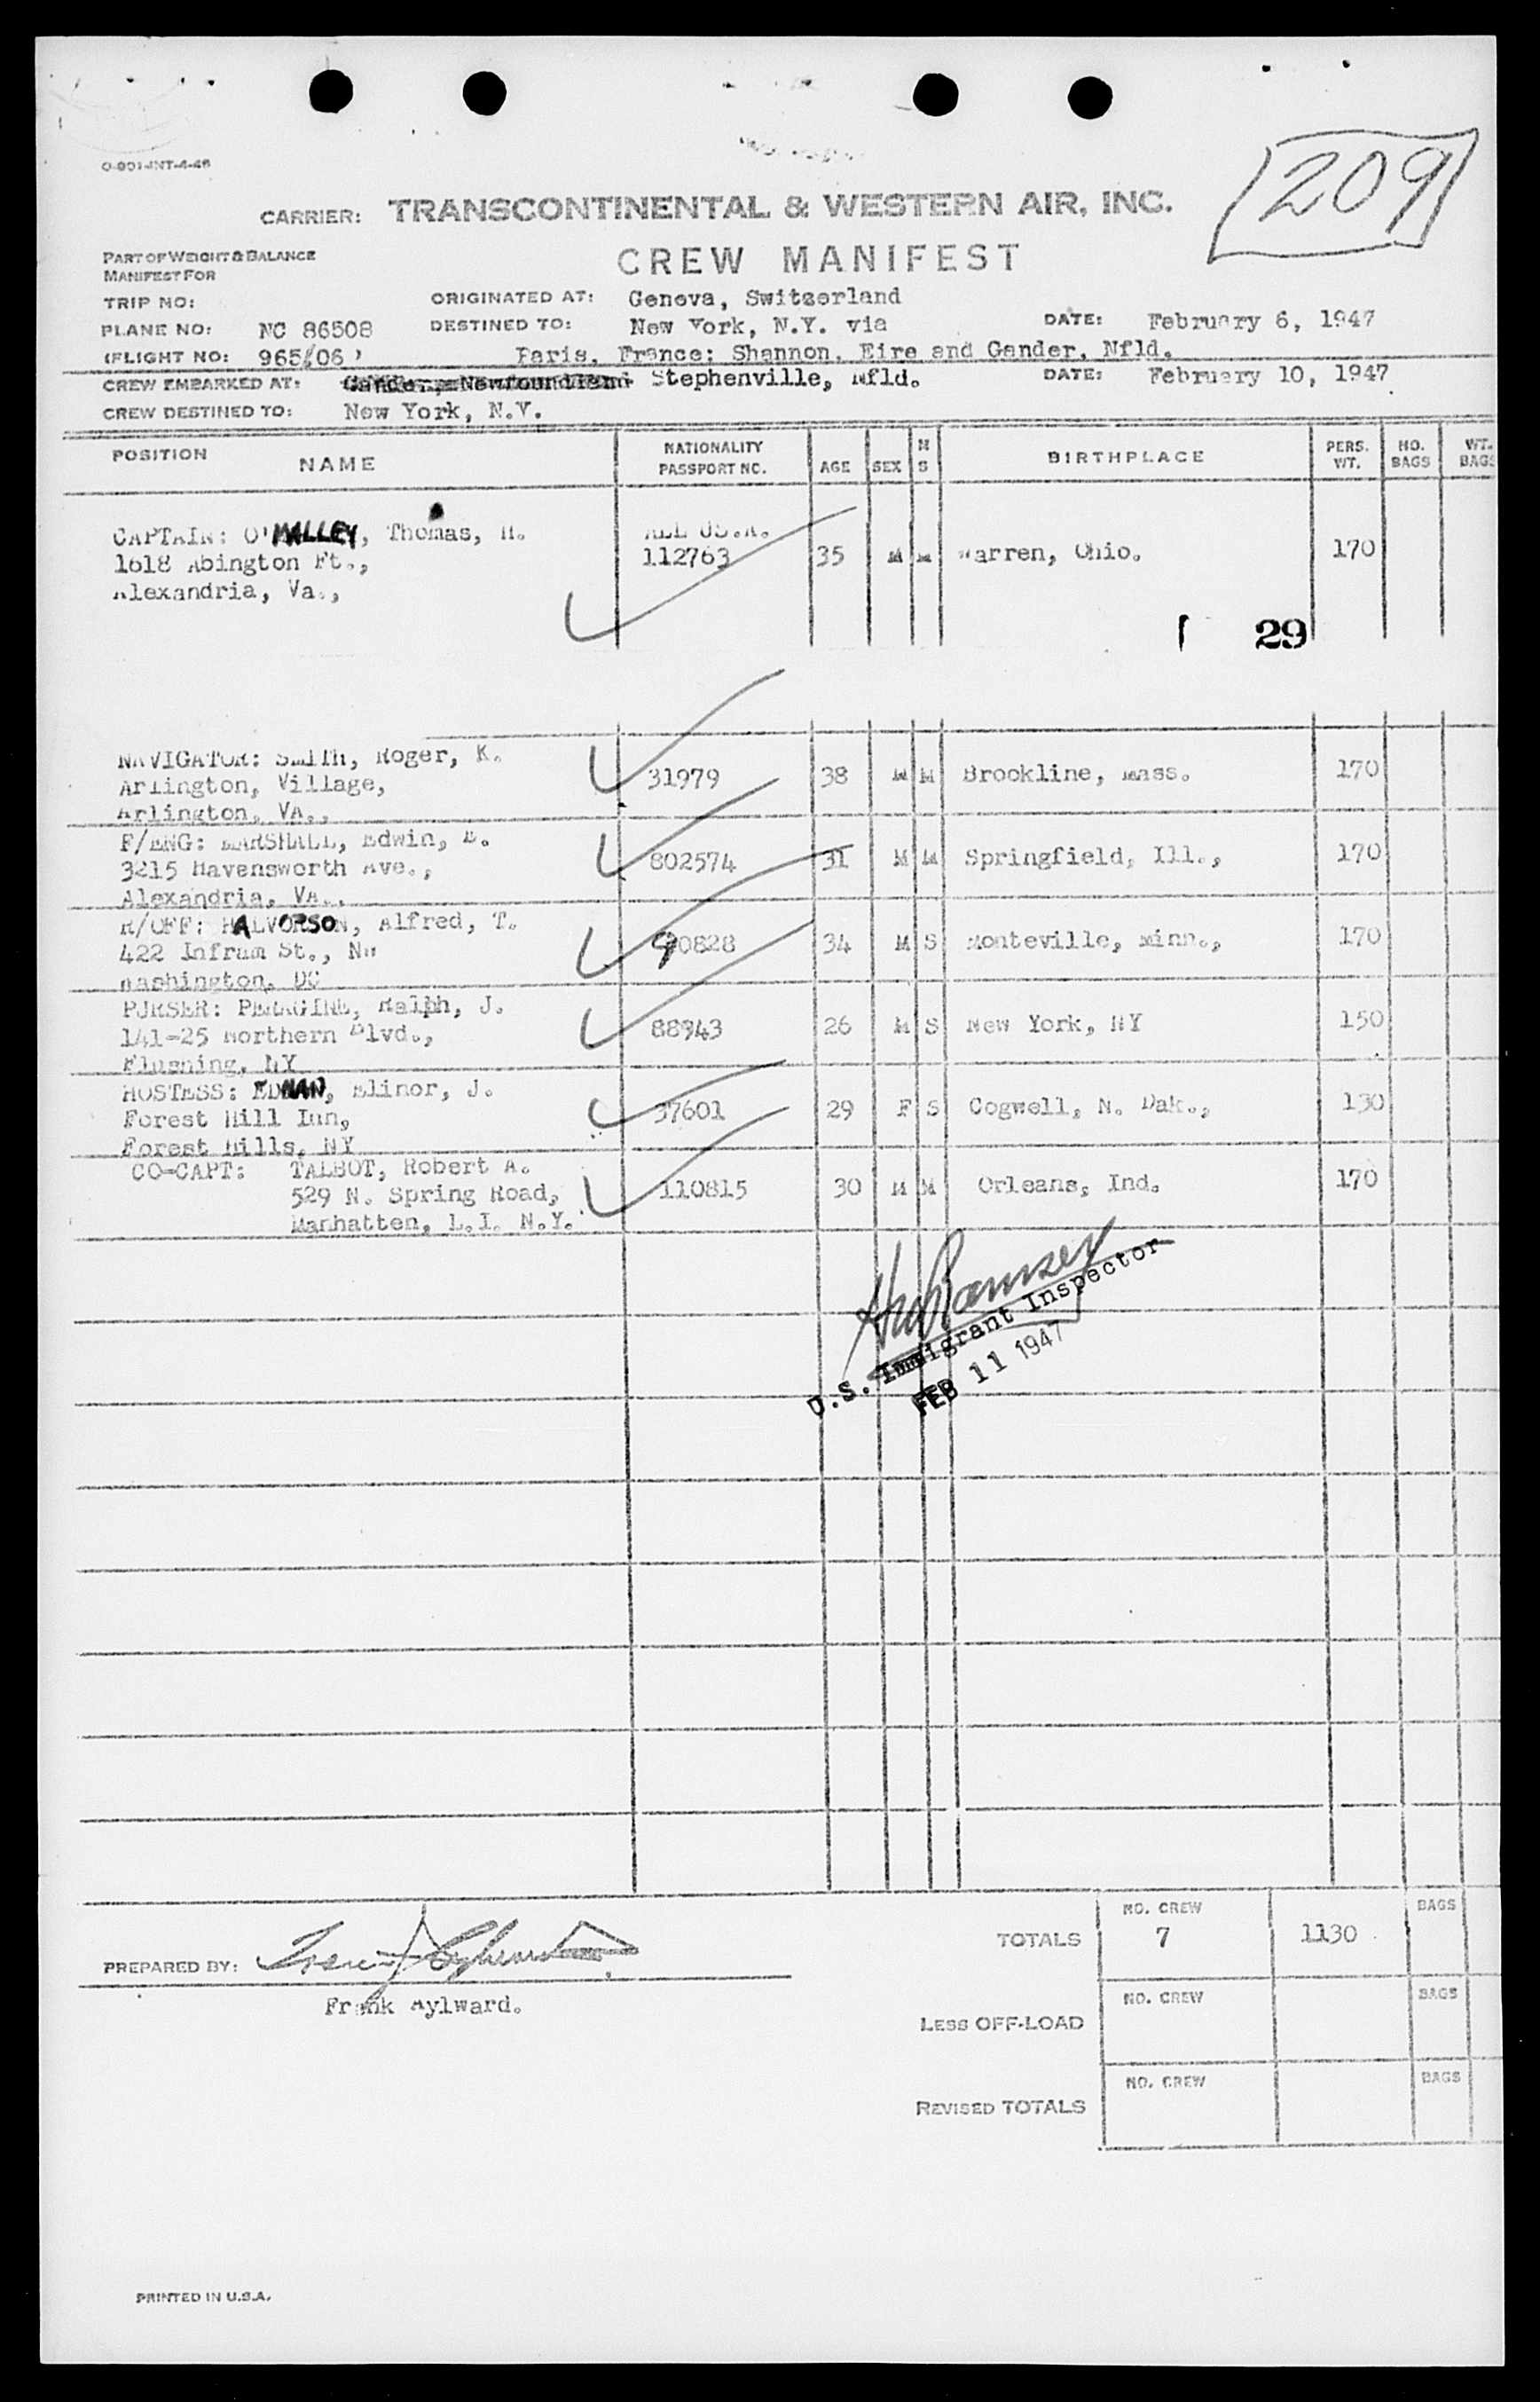 O-901-INT-4-46
209
CARRIER: TRANSCONTINENTAL & WESTERN AIR, INC.
PART OF WEIGHT & BALANCE
MANIFEST FOR
CREW MANIFEST
TRIP NO: ORIGINATED AT: Geneva, Switzerland
PLANE NO: NC 86508 DESTINED TO: New York, N.Y. via DATE: February 6, 1947
(FLIGHT NO: 965/06) Paris, France; Shannon, Eire and Gander, Nfld.
CREW EMBARKED AT: Gander, Newfoundland Stephenville, Nfld. DATE: February 10, 1947
CREW DESTINED TO: New York, N.Y.
POSITION NAME NATIONALITY PASSPORT NO. AGE SEX M S BIRTHPLACE PERS. WT. NO. BAGS WT. BAGS
CAPTAIN: O'MALLEY, Thomas, H. ALL US.A.
1618 Abington Pt., 112763 35 M M Warren, Ohio. 170
Alexandria, Va.,
29
NAVIGATOR: SMITH, Roger, K.
Arlington, Village, 31979 38 M M Brookline, Mass. 170
Arlington, VA.,
F/ENG: MARSHALL, Edwin, E.
3215 Ravensworth Ave., 802574 31 M M Springfield, Ill., 170
Alexandria, VA.,
R/OFF: HALVORSON, Alfred, T.
422 Infram St., NW 90828 34 M S Monteville, Minn., 170
Washington, DC
PURSER: PERAGINE, Ralph, J.
141-25 Northern Blvd., 88943 26 M S New York, NY 150
Flushing, NY
HOSTESS: EDMAN, Elinor, J.
Forest Hill Inn, 37601 29 F S Cogwell, N. Dak., 130
Forest Hills, NY
CO-CAPT: TALBOT, Robert A.
529 N. Spring Road, 110815 30 M M Orleans, Ind. 170
Manhatten, L.I. N.Y.
Ramsey
U.S. Immigrant Inspector
FEB 11 1947
TOTALS NO. CREW 7 1130 BAGS
PREPARED BY:
Frank Aylward.
LESS OFF-LOAD NO. CREW BAGS
REVISED TOTALS NO. CREW BAGS
PRINTED IN U.S.A.